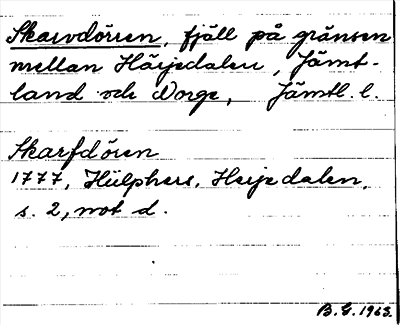 Skarvdörren, fjäll på gränsen
mellan Härjedalen, Jämt-
land och Norge, Jämtl. l.
Skarfdören
1777, Hülphers, Herjedalen,
s. 2, not d.
B.G. 1963.